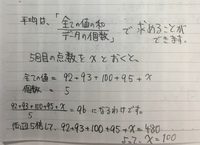 平均は、「全ての値の和
データの個数」で求めることが
できます。
5回目の点数をxとおくと、
全ての値 = 92+93+100+95+x
個数 = 5
92+93+100+95+x
5
= 96 になるわけです。
両辺5倍して、92+93+100+95+x=480
よって、x=100